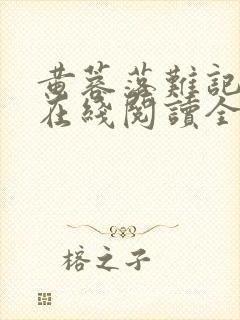 黄蓉落難記
在綫閱讀全
榕之子